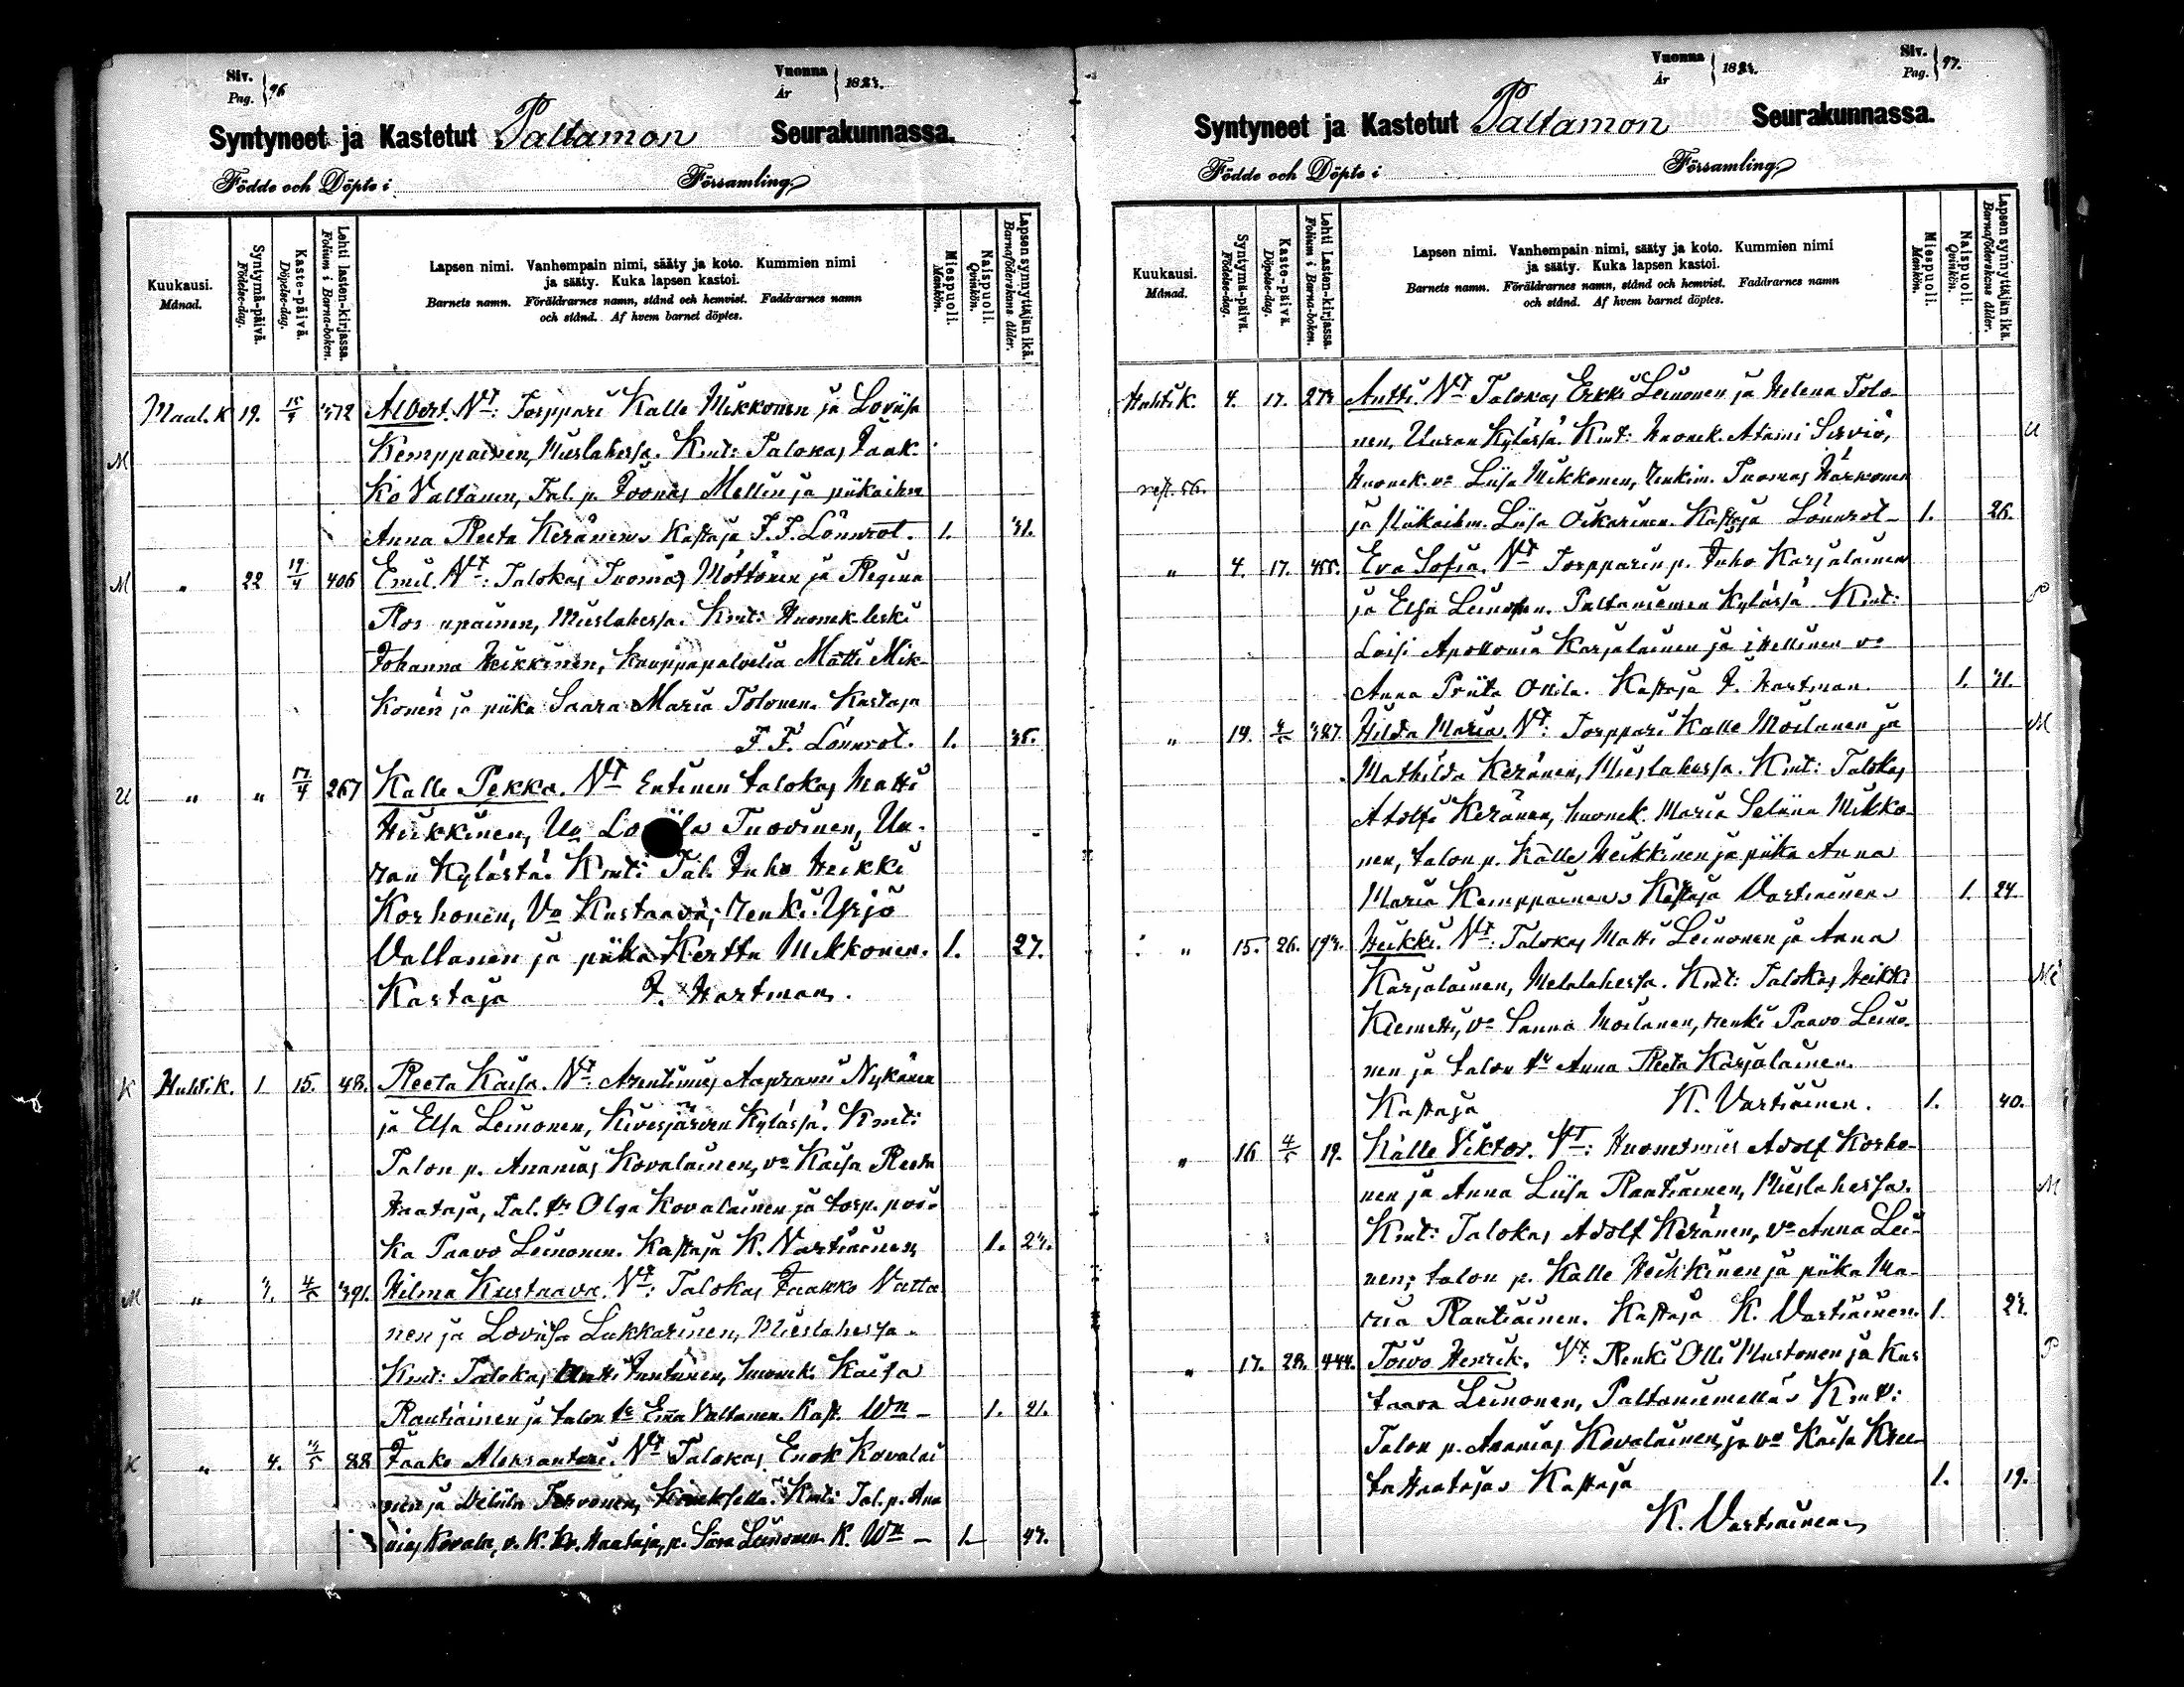 Siv.
Pag. 96
Vuonna
År 188
Syntyneet ja Kastetut Paltamon Seurakunnassa.
Födde och Döpte i Församling
Kuukausi.
Månad.
Syntymä-päivä.
Födelse-dag.
Kaste-päivä.
Döpelse-dag.
Lehti lasten-kirjassa.
Folium i Barna-boken.
Lapsen nimi. Vanhempain nimi, sääty ja koto. Kummien nimi
ja sääty. Kuka lapsen kastoi.
Barnets namn. Föräldrarnes namn, stånd och hemvist. Faddrarnes namn
och stånd. Af hvem barnet döptes.
Miespuoli.
Mankön.
Naispuoli.
Qvinkön.
Lapsen synnyttäjän ikä.
Barnaföderskans ålder.
Maal.k 19. 15/4 372 Albert. Vt: Torppari Kalle Mikkonen ja Loviisa
M Kemppainen, Mieslahessa. Kmt: Talokas Jaak-
ko Valtanen, Tal. p. Joonas Mellin ja piikaihm
Anna Reeta Keränen. Kastaja F. F. Lönnrot. 1. 31.
M " 22 19/4 406 Emil. Vt: Talokas Tuomas Möttönen ja Regina
Ros upainen, Mieslahessa. Kmt: Huonek leski
Johanna Heikkinen, kauppapalvelia Matti Mik-
konen ja piika Saara Maria Tolonen. Kastaja
F. F. Lönnrot. 1. 35.
U " " 17/4 267 Kalle Pekka. Vt Entinen talokas Matti
Heikkinen, Va Lo la Tuovinen, Uu-
ran kylästä. Kmt: Tal. Juho Heikki
Korhonen, Va Kustaava, renki Yrjö
Valtanen ja piika Kerttu Mikkonen. 1. 27.
Kastaja J. Hartman.
K Huhti.k. 1 15. 48. Reeta Kaisa. Vt: Arentimies Aaprami Nykänen
ja Elsa Leinonen, Kivesjärven kylässä. Kmt:
Talon p. Ananias Kovalainen, va Kaisa Reeta
Haataja, Tal. tr Olga Kovalainen ja torp. poi-
ka Paavo Leinonen. Kastaja K. Vartiainen 1. 23.
M " 3. 4/5 391. Hilma Kustaava. Vt: Talokas Jaakko Valta
nen ja Loviisa Lukkarinen, Mieslahessa.
Kmt: Talokas Antti Juntunen, huonek. Kaisa
Rautiainen ja talon tr Emma Valtanen. Kast. Wn 1. 21.
K " 4. 88 Jaako Aleksanteri. Vt Talokas Enok Kovalai
nen ja Torvonen, Kmt: Tal. p. Ana
nias Kovala, v. K. Kr. Haataja, p. Sara Leinonen. K. Wn 1. 43.
Siv.
Pag. 97.
Vuonna
År 188
Syntyneet ja Kastetut Paltamon Seurakunnassa.
Födde och Döpte i Församling
Kuukausi.
Månad.
Syntymä-päivä.
Födelse-dag.
Kaste-päivä.
Döpelse-dag.
Lehti Lasten-kirjassa.
Folium i Barna-boken.
Lapsen nimi. Vanhempain nimi, sääty ja koto. Kummien nimi
ja sääty. Kuka lapsen kastoi.
Barnets namn. Föräldrarnes namn, stånd och hemvist. Faddrarnes namn
och stånd. Af hvem barnet döptes.
Miespuoli.
Mankön.
Naispuoli.
Qvinkön.
Lapsen synnyttäjän ikä.
Barnaföderskans ålder.
Huhti k. 4. 17. 273 Antti. Vt Talokas Erkki Leinonen ja Helena Tolo-
nen, Uuran kylässä. Kmt: Huonek. Atami Sirviö, U
Huonek. va Liisa Mikkonen, renkim. Tuomas Härkönen
ja piikaihm. Liisa Oikarinen. Kastaja Lönnrot 1. 26.
" 4. 17. 455. Eva Sofia. Vt Torpparin p. Juho Karjalainen
ja Elsa Leinonen. Paltaniemen kylässä. Kmt: P
Loisi Apollonia Karjalainen ja itellinen va
Anna Priita Okila. Kastaja J. Hartman. 1. 31.
" 14. 4/5 387. Hilda Maria. Vt: Torppari Kalle Moilanen ja M
Mathilda Keränen, Mieslahessa. Kmt: Talokas
Atolfi Keränen, huonek. Maria Seliina Mikko-
nen, talon p. Kalle Heikkinen ja piika Anna
Maria Kemppainen. Kastaja Vartiainen 1. 24.
" 15. 26. 193. Heikki. Vt: Talokas Matti Leinonen ja Anna
Karjalainen, Melalahessa. Kmt: Talokas Heikki Me
Klemetti, va Sanna Moilanen, renki Paavo Leino-
nen ja talon tr Anna Reeta Karjalainen.
Kastaja K. Vartiainen. 1. 40.
" 16 4/5 19. Kalle Viktor. Vt: Huonemies Adolf Korho-
nen ja Anna Liisa Rautiainen, Mieslahessa. M
Kmt: Talokas Adolf Keränen, va Anna Lei-
nen, talon p. Kalle Heikkinen ja piika Ma-
ria Rautiainen. Kastaja K. Vartiainen. 1. 23.
" 17. 28. 444. Toivo Henrik. Vt: Renki Olli Mustonen ja Kus P
taava Leinonen, Paltaniemellä. Kmt:
Talon p. Ananias Kovalainen, ja va Kaisa Kree-
ta Haataja. Kastaja 1. 19.
K. Vartiainen